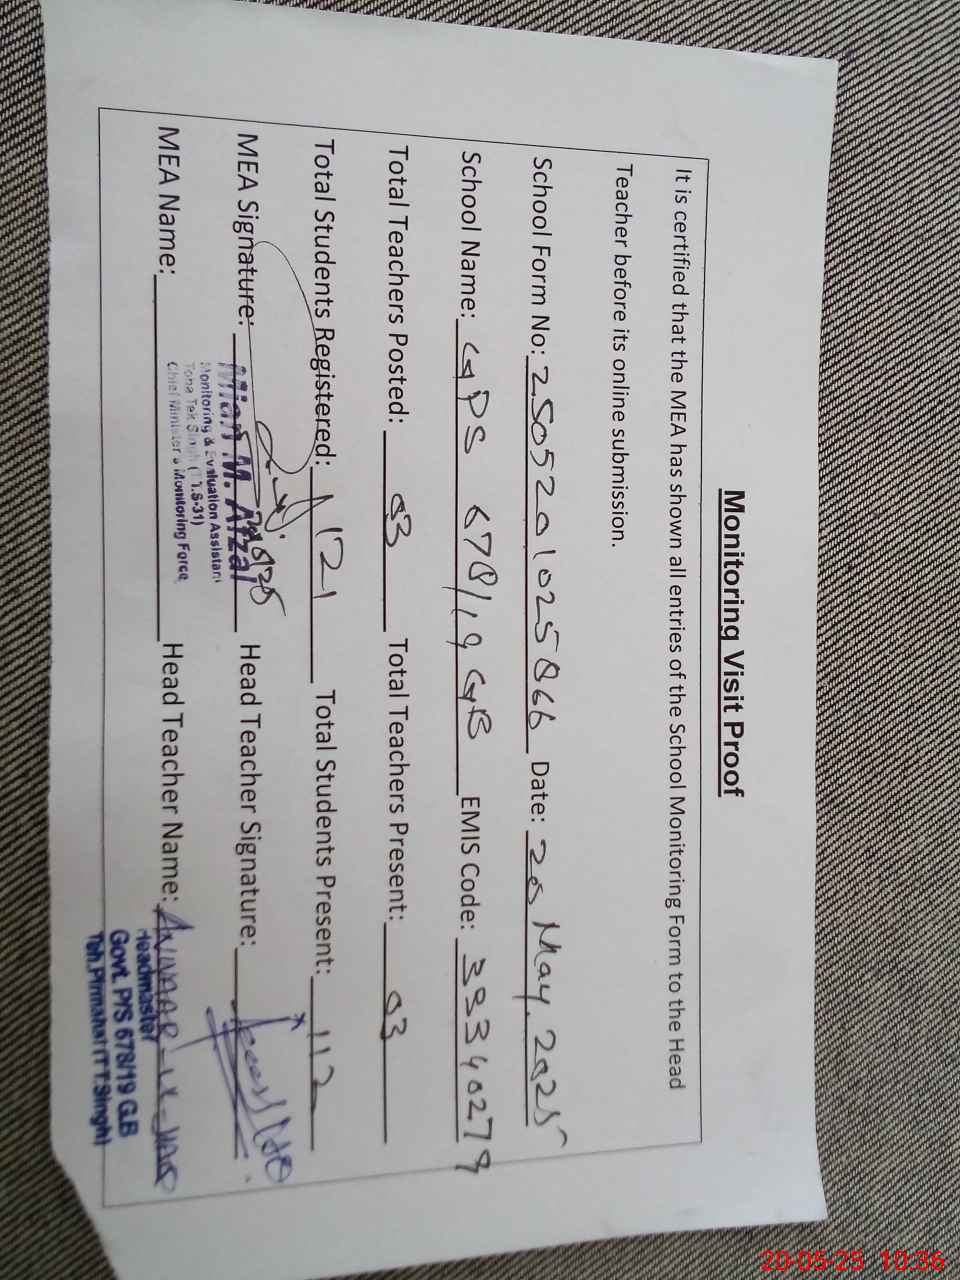 Monitoring Visit Proof
It is certified that the MEA has shown all entries of the School Monitoring Form to the Head
Teacher before its online submission.
School Form No: 2505201025866 Date: 20 May, 2025
School Name: GPS 678/19 GB EMIS Code: 33340279
Total Teachers Posted: 03 Total Teachers Present: 03
Total Students Registered: 121 Total Students Present: 112
MEA Signature: Head Teacher Signature:
Mian M. Afzal
Monitoring & Evaluation Assistant
Toba Tek Singh (T.T.S-31)
Chief Minister's Monitoring Force
MEA Name: Head Teacher Name:
Headmaster
Govt. P/S 678/19 G.B
Teh. Pirmahal (T.T.Singh)
20-05-25 10:36